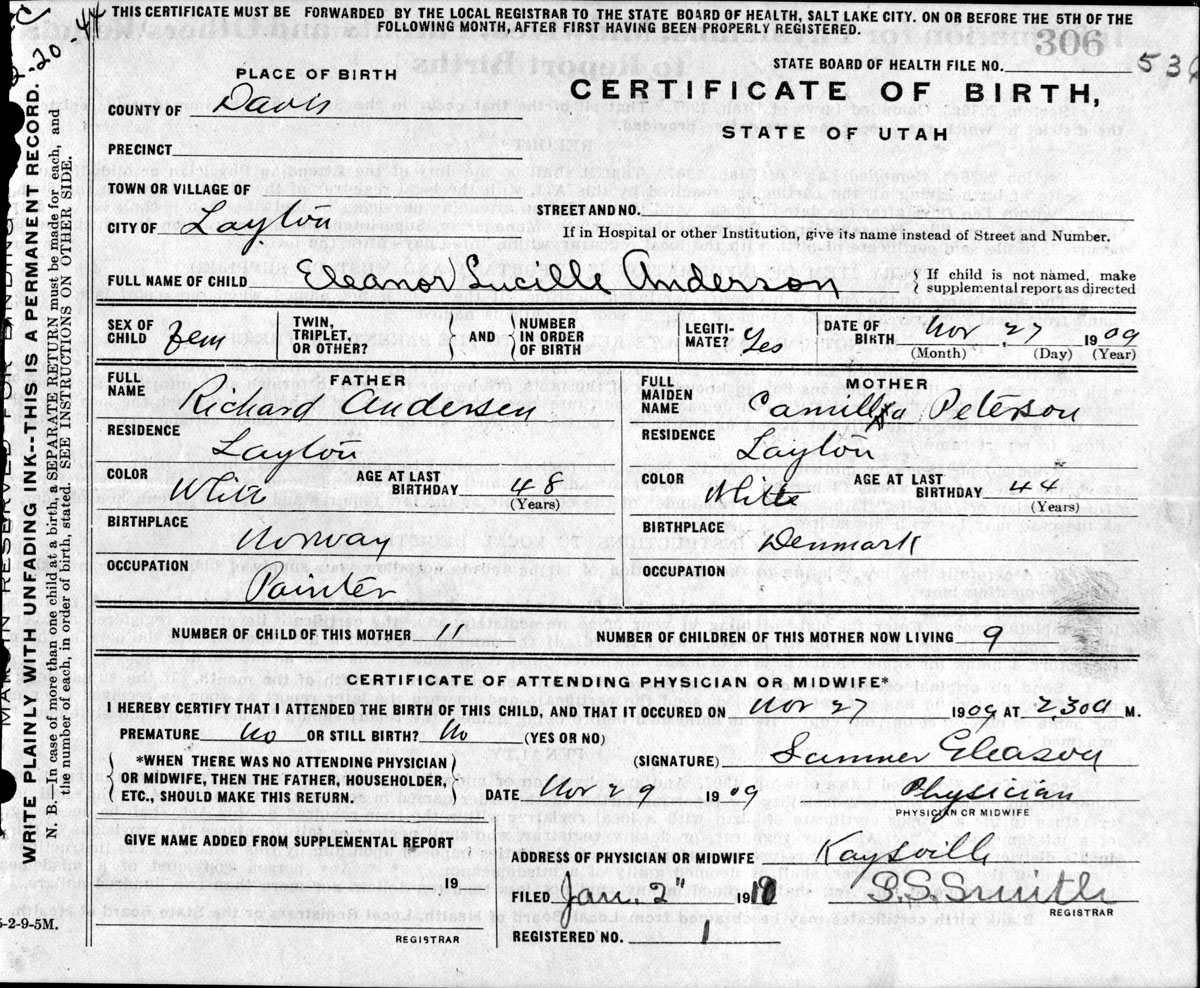 THIS CERTIFICATE MUST BE FORWARDED BY THE LOCAL REGISTRAR TO THE STATE BOARD OF HEALTH, SALT LAKE CITY. ON OR BEFORE THE 5TH OF THE
FOLLOWING MONTH, AFTER FIRST HAVING BEEN PROPERLY REGISTERED.
306
STATE BOARD OF HEALTH FILE NO. 536
PLACE OF BIRTH
CERTIFICATE OF BIRTH,
STATE OF UTAH
COUNTY OF Davis
PRECINCT
TOWN OR VILLAGE OF
CITY OF Layton
STREET AND NO.
If in Hospital or other Institution, give its name instead of Street and Number.
FULL NAME OF CHILD Eleanor Lucille Anderson
{ If child is not named, make
supplemental report as directed
SEX OF CHILD Fem
TWIN, TRIPLET, OR OTHER?
AND
NUMBER IN ORDER OF BIRTH
LEGITI-MATE? Yes
DATE OF BIRTH Nov, 27 1909
(Month) (Day) (Year)
FATHER
FULL NAME Richard Andersen
RESIDENCE Layton
COLOR White
AGE AT LAST BIRTHDAY 48
(Years)
BIRTHPLACE Norway
OCCUPATION Painter
MOTHER
FULL MAIDEN NAME Camilla Peterson
RESIDENCE Layton
COLOR White
AGE AT LAST BIRTHDAY 44
(Years)
BIRTHPLACE Denmark
OCCUPATION
NUMBER OF CHILD OF THIS MOTHER 11
NUMBER OF CHILDREN OF THIS MOTHER NOW LIVING 9
CERTIFICATE OF ATTENDING PHYSICIAN OR MIDWIFE*
I HEREBY CERTIFY THAT I ATTENDED THE BIRTH OF THIS CHILD, AND THAT IT OCCURED ON Nov 27 1909 AT 2,30a M.
PREMATURE No OR STILL BIRTH? No (YES OR NO)
*WHEN THERE WAS NO ATTENDING PHYSICIAN
OR MIDWIFE, THEN THE FATHER, HOUSEHOLDER,
ETC., SHOULD MAKE THIS RETURN.
(SIGNATURE) Sumner Gleason
DATE Nov 29 1909
Physician
PHYSICIAN OR MIDWIFE
GIVE NAME ADDED FROM SUPPLEMENTAL REPORT
19
REGISTRAR
ADDRESS OF PHYSICIAN OR MIDWIFE Kaysville
FILED Jan. 2" 1910
Smith
REGISTRAR
REGISTERED NO. 1
5-2-9-5M.
MARGIN RESERVED FOR BINDING
WRITE PLAINLY WITH UNFADING INK--THIS IS A PERMANENT RECORD.
N. B. In case of more than one child at a birth, a SEPARATE RETURN must be made for each, and
the number of each, in order of birth, stated. SEE INSTRUCTIONS ON OTHER SIDE.